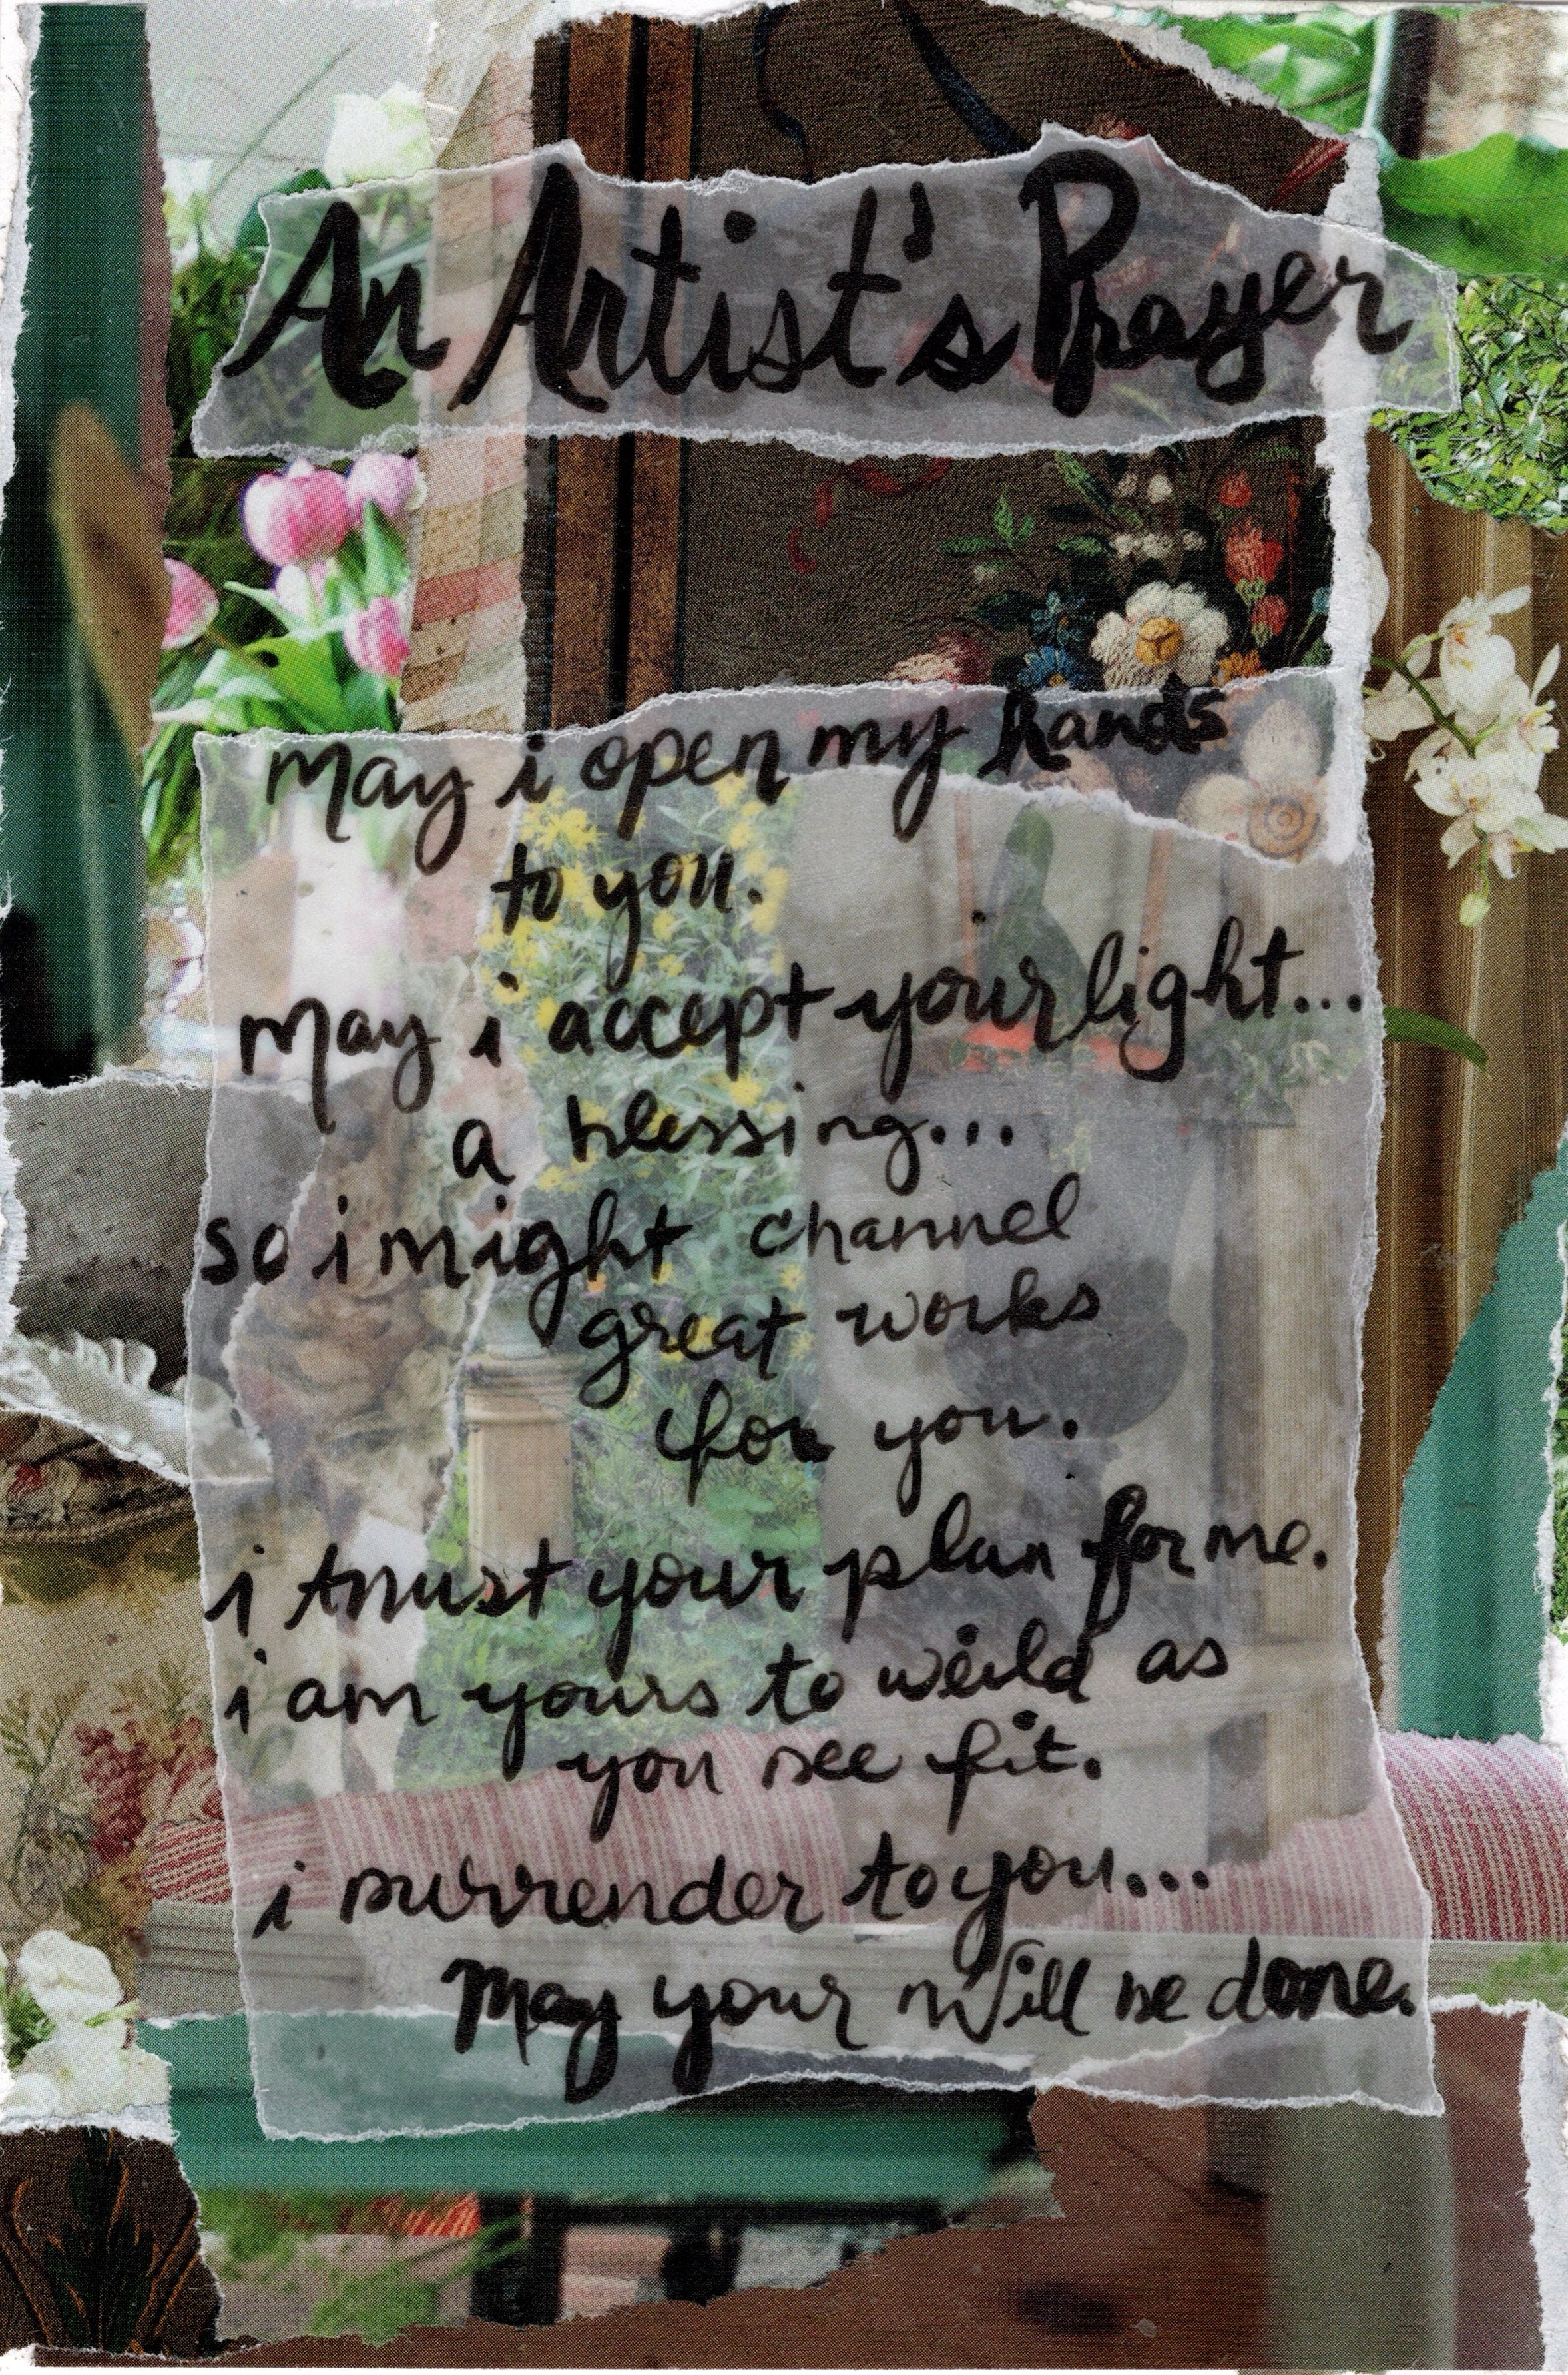 An Artist's Prayer
may i open my hands
to you.
may i accept your light...
a blessing...
so i might channel
great works
for you.
i trust your plan for me.
i am yours to weild as
you see fit.
i surrender to you...
may your will be done.